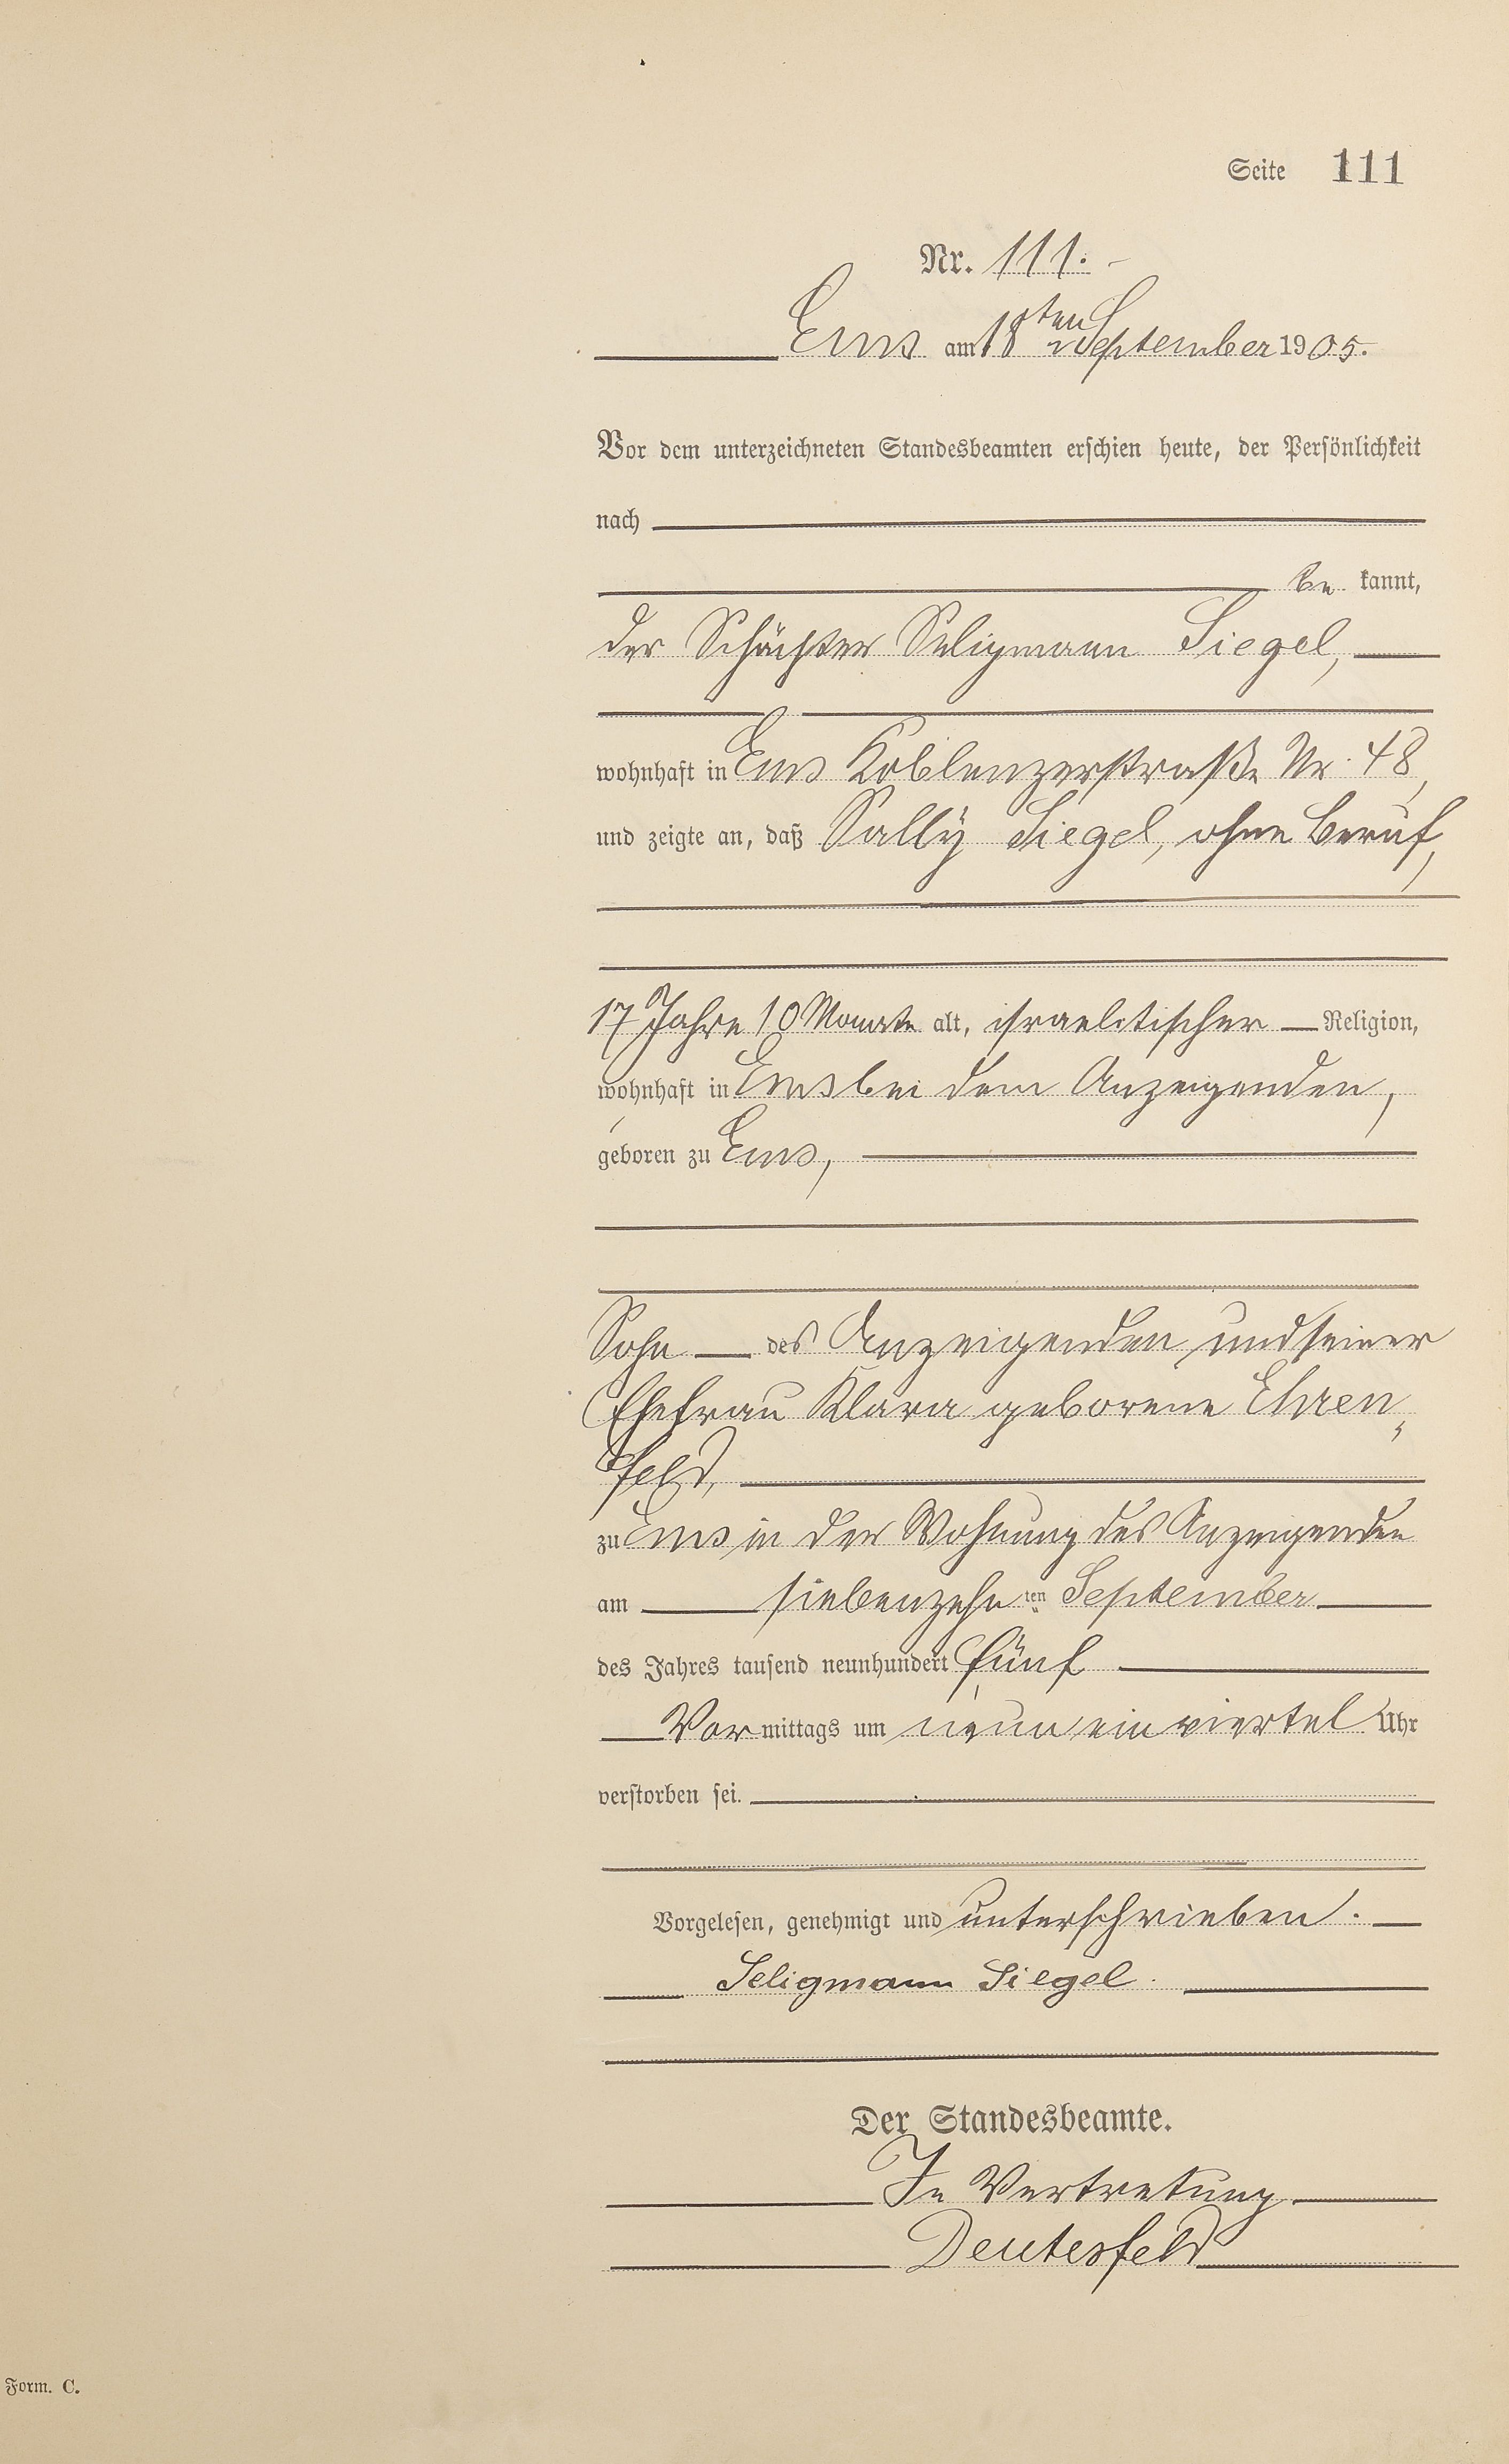 Seite 111
Nr. 111.
Ems am 18ten September 1905.
Vor dem unterzeichneten Standesbeamten erschien heute, der Persönlichkeit
nach
be kannt,
der Schächter Seligmann Siegel,
wohnhaft in Ems Koblenzerstraße Nr. 48,
und zeigte an, daß Sally Siegel, ohne Beruf,
17 Jahre 10 Monate alt, israelitischer Religion,
wohnhaft in Ems bei dem Anzeigenden,
geboren zu Ems,
Sohn des Anzeigenden und seiner
Ehefrau Klara geborene Ehren„
feld,
zu Ems in der Wohnung des Anzeigenden
am siebenzehn ten September
des Jahres tausend neunhundert fünf
Vor mittags um neun ein viertel Uhr
verstorben sei.
Vorgelesen, genehmigt und unterschrieben.
Seligmann Siegel.
Der Standesbeamte.
In Vertretung
Deutesfeld
Form. C.